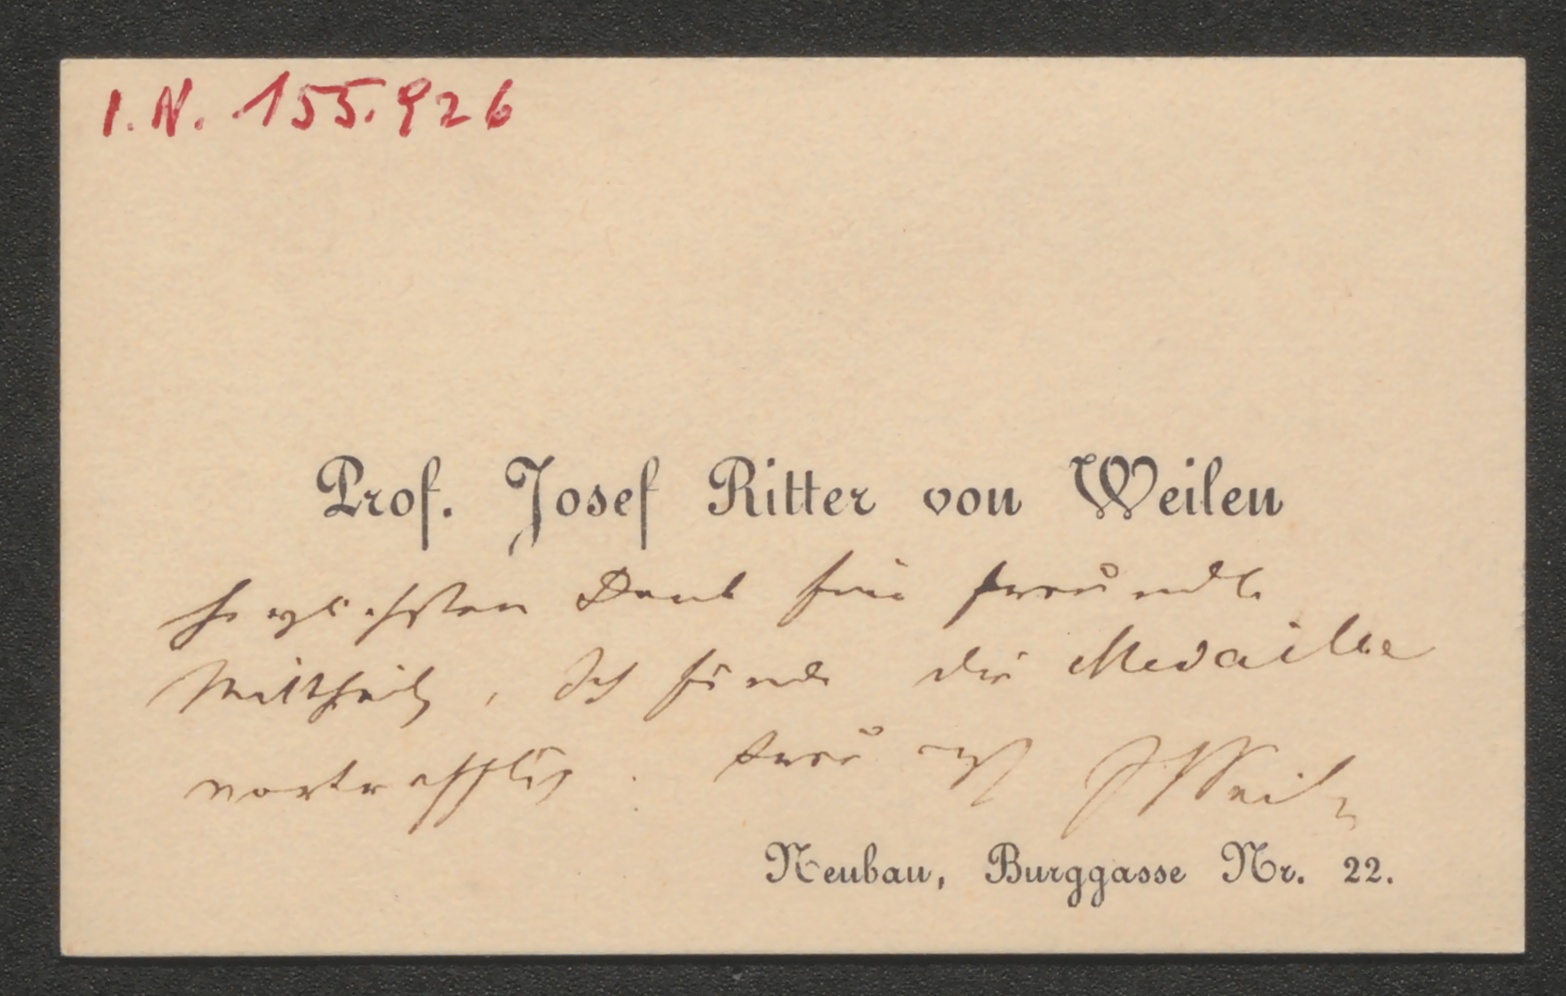 I.N. 155.926
Prof. Josef Ritter von Weilen
herzlichsten Dank für freundl
Mittheilg, Ich finde die Medaille
vortrefflich. Treu JWeilen
Neubau, Burggasse Nr. 22.